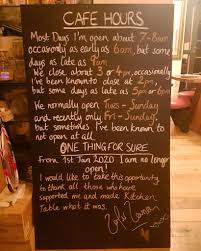 CAFE HOURS
Most Days I'm open about 7-8am
occasionly as early as 6am, but some
days as late as 9am
We close about 3 or 4pm, occasionally
I've been known to close at 2pm,
but some days as late as 5pm or 6pm
We normally open Tues - Sunday
and recently only Fri - Sunday.
but sometimes I've been known to
not open at all.
ONE THING FOR SURE
from 1st Jan 2020 I am no longer
open!
I would like to take this opportunity
to thank all those who have
supported me and made Kitchen
Table what it was.